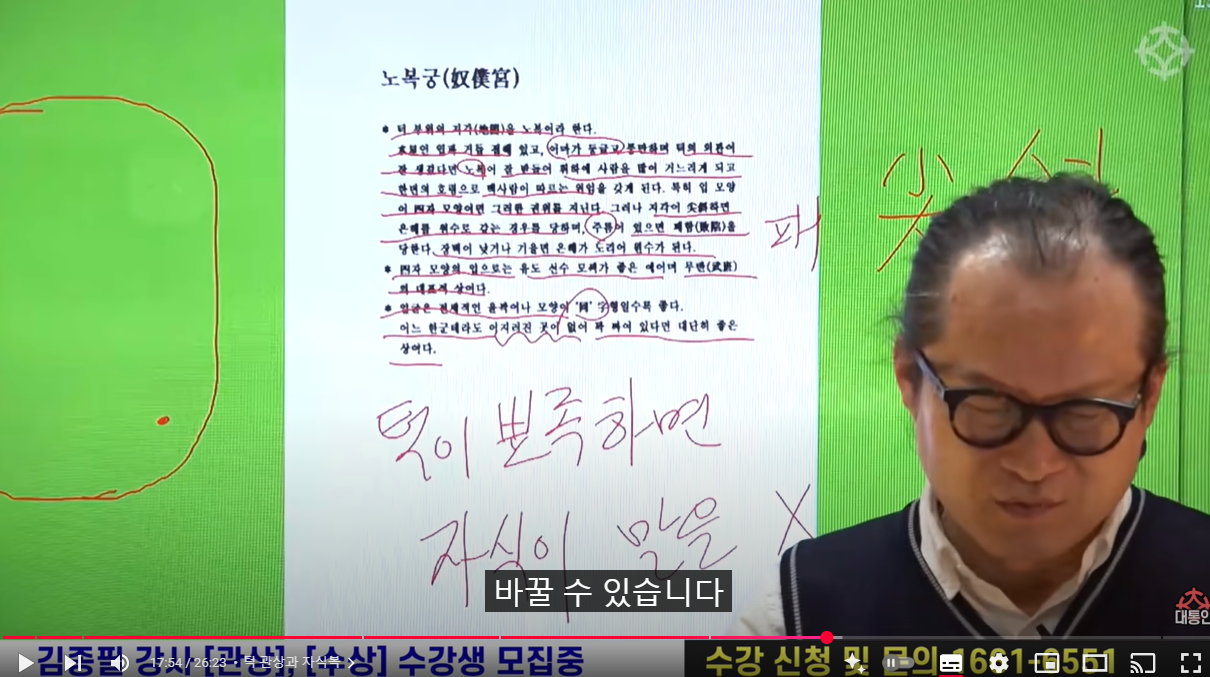 노복궁(奴僕宮)
● 턱 부위의 지각(地閣)을 노복이라 한다.
호보인 일파 거들 절해 있고, 이마가 둥글고 풍만하며 턱의 외관이
잘 생겼다면 노복이 잘 받들어 휘하에 사람을 많이 거느리게 되고
한번의 호령으로 백사람이 따르는 위엄을 갖게 된다. 특히 입 모양
이 四자 모양이면 그러한 권위를 지닌다. 그러나 지각이 尖斜하면
은혜를 원수로 갚는 경우를 당하며, 주름이 있으면 패함(敗陷)을
당한다. 장벽이 낮거나 기울면 은혜가 도리어 원수가 된다.
● 四자 모양의 입으로는 유도 선수 모씨가 좋은 예이며 무반(武班)
의 대표적 상이다.
● 얼굴은 전체적인 윤곽이나 모양이 '國' 字형일수록 좋다.
어느 한군데라도 이지러진 곳이 없어 꽉 짜여 있다면 대단히 좋은
상이다.
패
尖
턱이 뾰족하면
자식이 말을 X
바꿀 수 있습니다
大
대통인
김종필 강사 [관상], [수상] 수강생 모집중
수강 신청 및 문의 1661-8551
17:54 / 26:23 • 턱 관상과 자식복 >